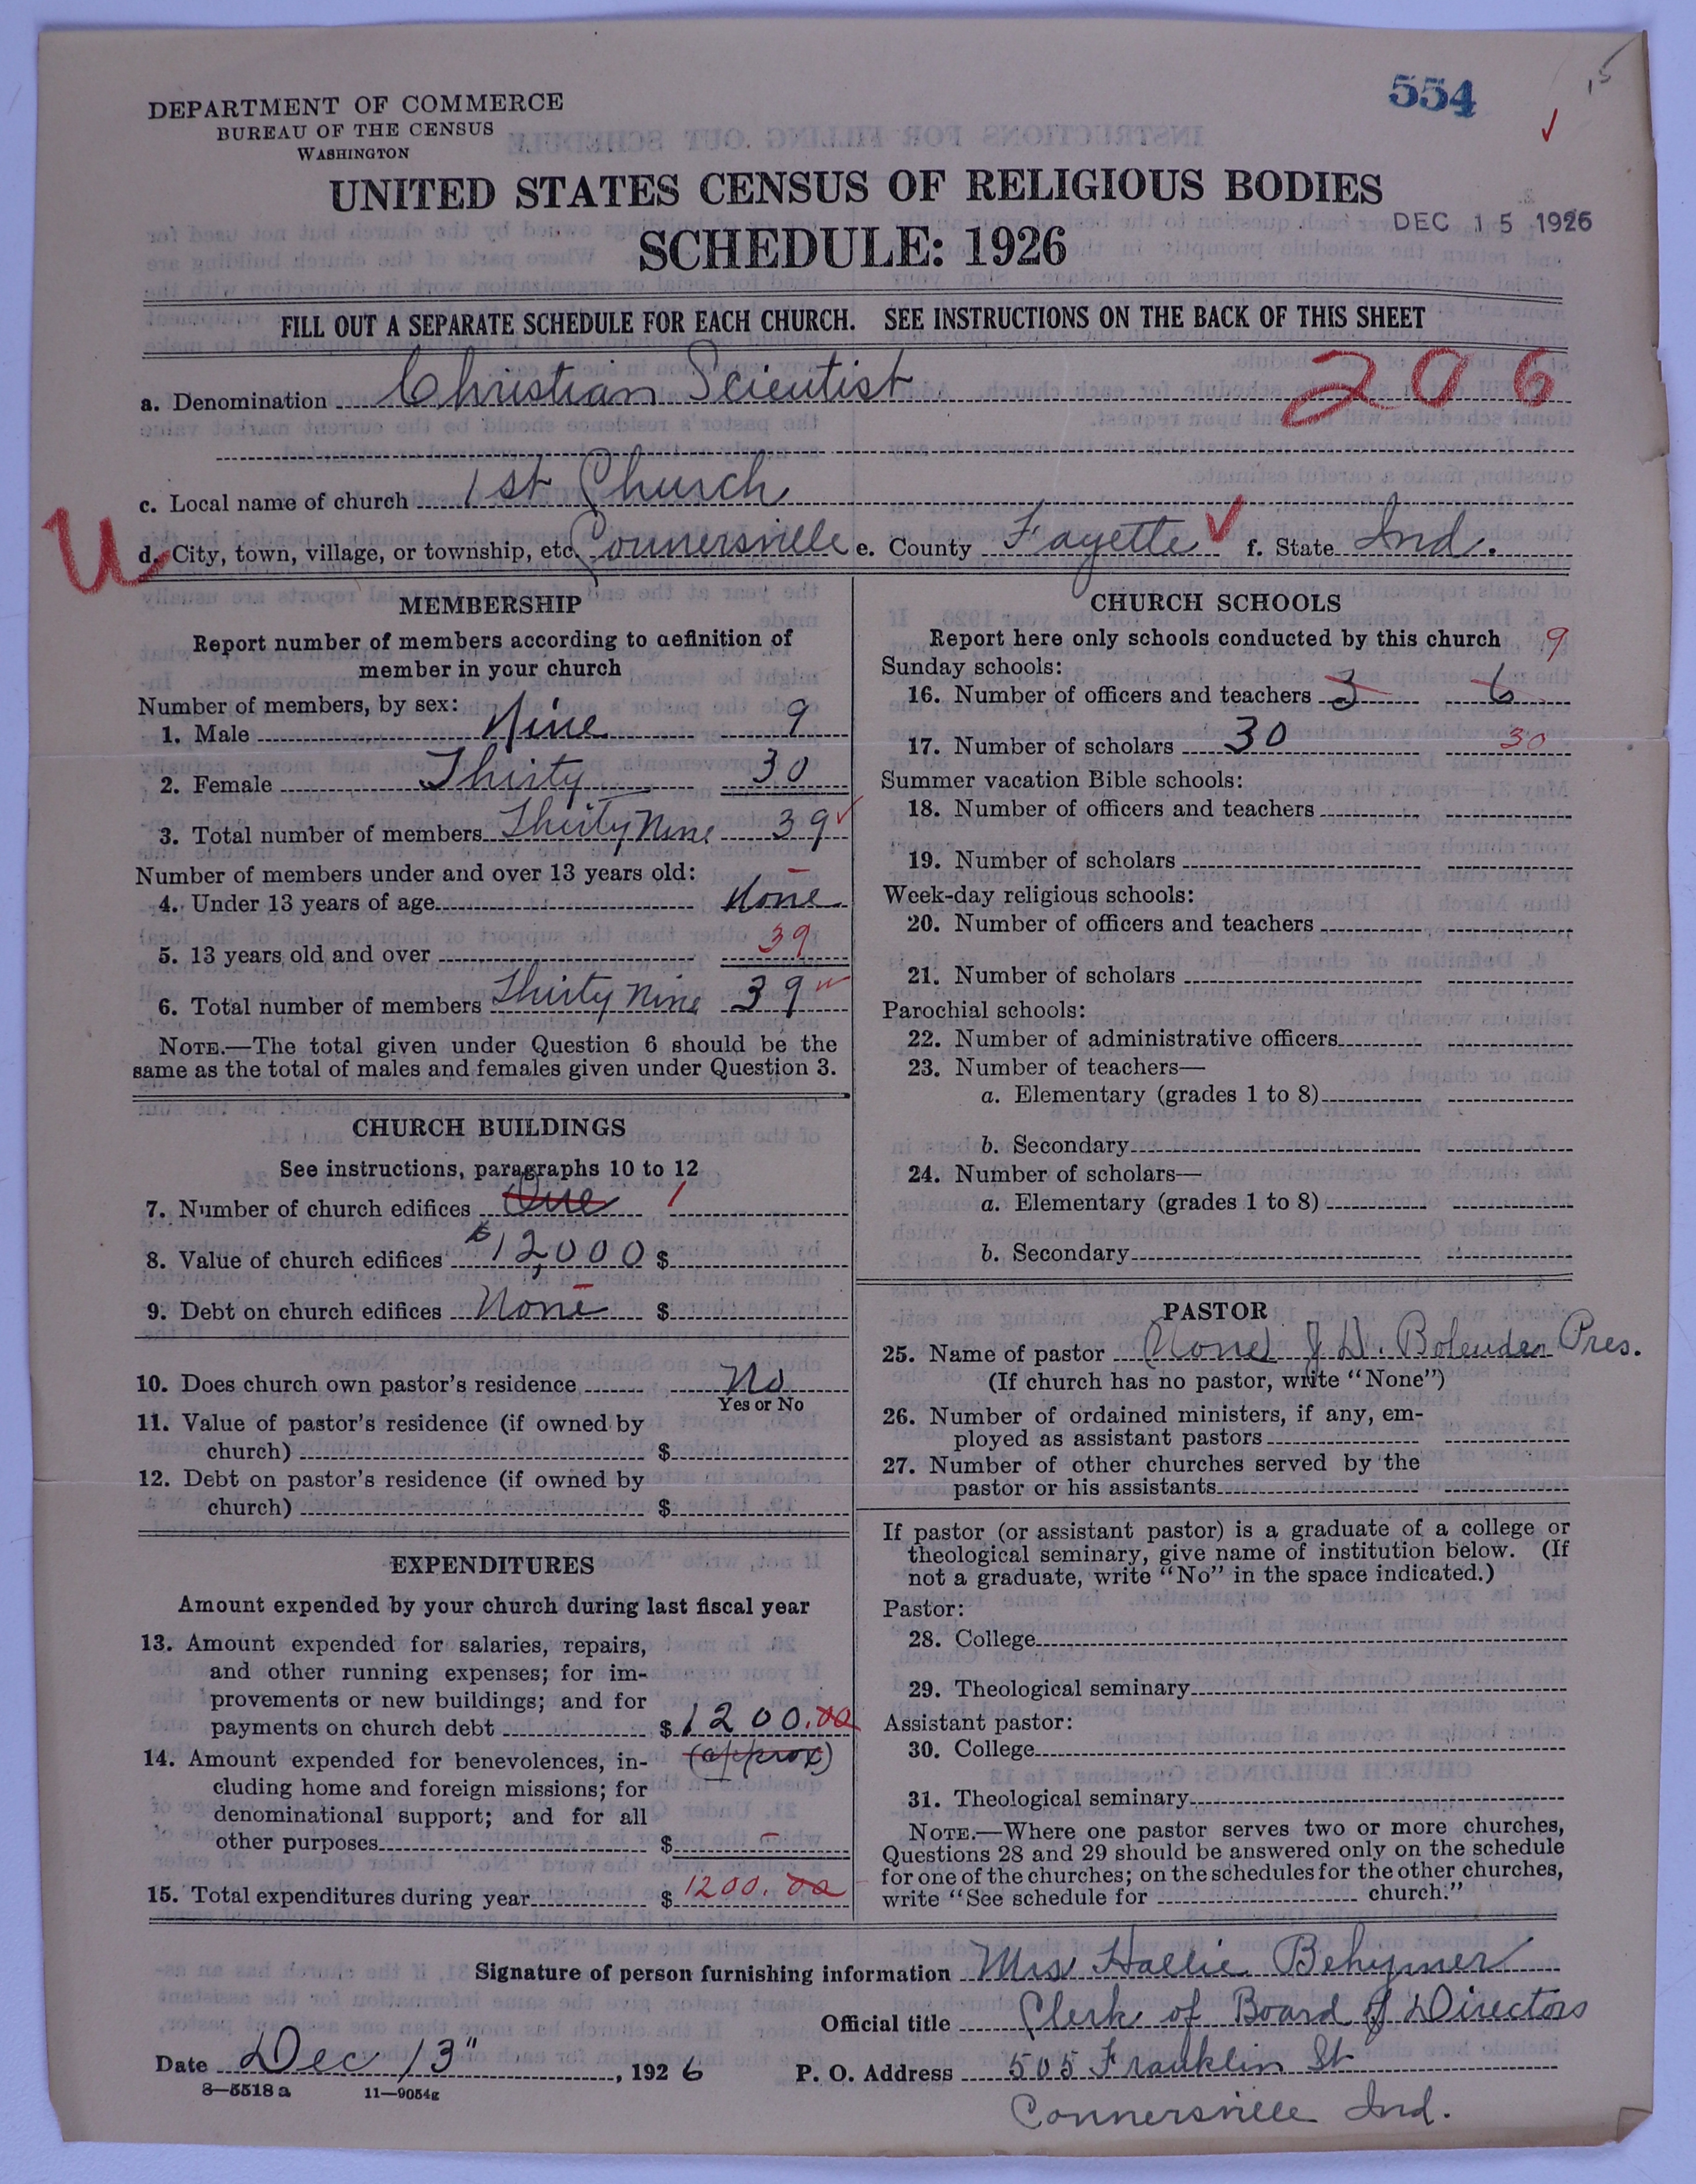 554
15
DEPARTMENT OF COMMERCE
BUREAU OF THE CENSUS
WASHINGTON
UNITED STATES CENSUS OF RELIGIOUS BODIES
DEC 15 1926
SCHEDULE: 1926
FILL OUT A SEPARATE SCHEDULE FOR EACH CHURCH. SEE INSTRUCTIONS ON THE BACK OF THIS SHEET
206
a. Denomination Christian Scientist
c. Local name of church 1st Church
U
d. City, town, village, or township, etc. Connersville e. County Fayette f. State Ind.
MEMBERSHIP
Report number of members according to definition of
member in your church
Number of members, by sex:
1. Male Nine 9
2. Female Thirty 30
3. Total number of members Thirty Nine 39
Number of members under and over 13 years old:
4. Under 13 years of age None
5. 13 years old and over 39
6. Total number of members Thirty Nine 39
NOTE.—The total given under Question 6 should be the
same as the total of males and females given under Question 3.
CHURCH BUILDINGS
See instructions, paragraphs 10 to 12
7. Number of church edifices One 1
8. Value of church edifices $12,000 $
9. Debt on church edifices None $
10. Does church own pastor's residence No
Yes or No
11. Value of pastor's residence (if owned by
church) $
12. Debt on pastor's residence (if owned by
church) $
EXPENDITURES
Amount expended by your church during last fiscal year
13. Amount expended for salaries, repairs,
and other running expenses; for im-
provements or new buildings; and for
payments on church debt $1200.00
(approx)
14. Amount expended for benevolences, in-
cluding home and foreign missions; for
denominational support; and for all
other purposes $ –
15. Total expenditures during year $1200.00
CHURCH SCHOOLS
Report here only schools conducted by this church 9
Sunday schools:
16. Number of officers and teachers 3 6
17. Number of scholars 30 30
Summer vacation Bible schools:
18. Number of officers and teachers
19. Number of scholars
Week-day religious schools:
20. Number of officers and teachers
21. Number of scholars
Parochial schools:
22. Number of administrative officers
23. Number of teachers—
a. Elementary (grades 1 to 8)
b. Secondary
24. Number of scholars—
a. Elementary (grades 1 to 8)
b. Secondary
PASTOR
25. Name of pastor (None) J. D. Bolender Pres.
(If church has no pastor, write "None")
26. Number of ordained ministers, if any, em-
ployed as assistant pastors
27. Number of other churches served by the
pastor or his assistants
If pastor (or assistant pastor) is a graduate of a college or
theological seminary, give name of institution below. (If
not a graduate, write "No" in the space indicated.)
Pastor:
28. College
29. Theological seminary
Assistant pastor:
30. College
31. Theological seminary
NOTE.—Where one pastor serves two or more churches,
Questions 28 and 29 should be answered only on the schedule
for one of the churches; on the schedules for the other churches,
write "See schedule for church."
Signature of person furnishing information Mrs Hallie Behymer
Official title Clerk of Board of Directors
Date Dec 13", 1926 P. O. Address 505 Franklin St
8—5518 a 11—9054g
Connersville Ind.